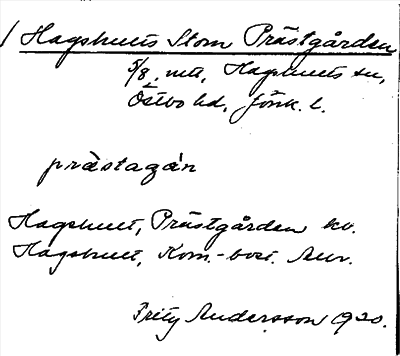 Hagshults Stom Prästgården
5/8 mtl, Hagshults sn,
Östbo hd, Jönk. l.
prästagån
Hagshult, Prästgården kv.
Hagshult, Kom.-bost. Anv.
Fritz Andersson 1920.